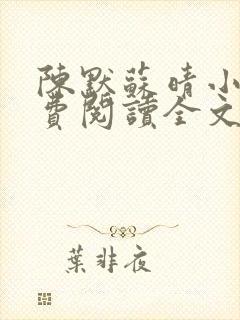 陳默蘇晴小
費閱讀全文
葉非夜